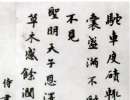 駝車度磧
囊盈滿不
不見
聖明天子恩
草木感餘潤
侍書